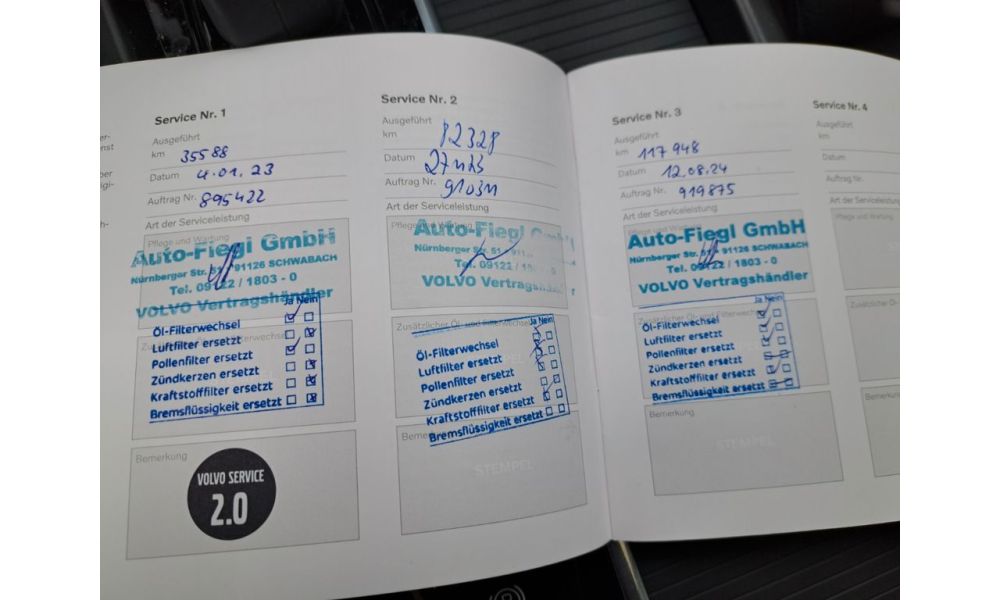 Service Nr. 1
Ausgeführt
km 35588
Datum 4.01.23
Auftrag Nr. 895422
Art der Serviceleistung
Pflege und Wartung
Auto-Fiegl GmbH
Nürnberger Str. 51 · 91126 SCHWABACH
Tel. 09122 / 1803 - 0
VOLVO Vertragshändler
Ja Nein
Öl-Filterwechsel
Luftfilter ersetzt
Pollenfilter ersetzt
Zündkerzen ersetzt
Kraftstofffilter ersetzt
Bremsflüssigkeit ersetzt
Bemerkung
VOLVO SERVICE
2.0
Service Nr. 2
Ausgeführt
km 82328
Datum
Auftrag Nr. 910311
Art der Serviceleistung
Pflege und Wartung
Auto-Fiegl
Nürnberger Str. 51
Tel. 09122 /
VOLVO Vertragshändl
Zusätzlicher Öl- und Filterwechsel
Ja Nein
Öl-Filterwechsel
Luftfilter ersetzt
Pollenfilter ersetzt
Zündkerzen ersetzt
Kraftstofffilter ersetzt
Bremsflüssigkeit ersetzt
STEMPEL
Service Nr. 3
Ausgeführt
km 117948
Datum 12.08.24
Auftrag Nr. 919875
Art der Serviceleistung
Auto-Fiegl GmbH
Nürnberger Str. 51 · 91126 SCHWABACH
Tel. 09122 / 1803 - 0
VOLVO Vertragshändler
Ja Nein
Öl-Filterwechsel
Luftfilter ersetzt
Pollenfilter ersetzt
Zündkerzen ersetzt
Kraftstofffilter ersetzt
Bremsflüssigkeit ersetzt
Bemerkung
STEMPEL
Service Nr. 4
Ausgeführt
km
Datum
Auftrag Nr.
Art der Serviceleistung
Pflege und Wartung
Zusätzlicher Öl-